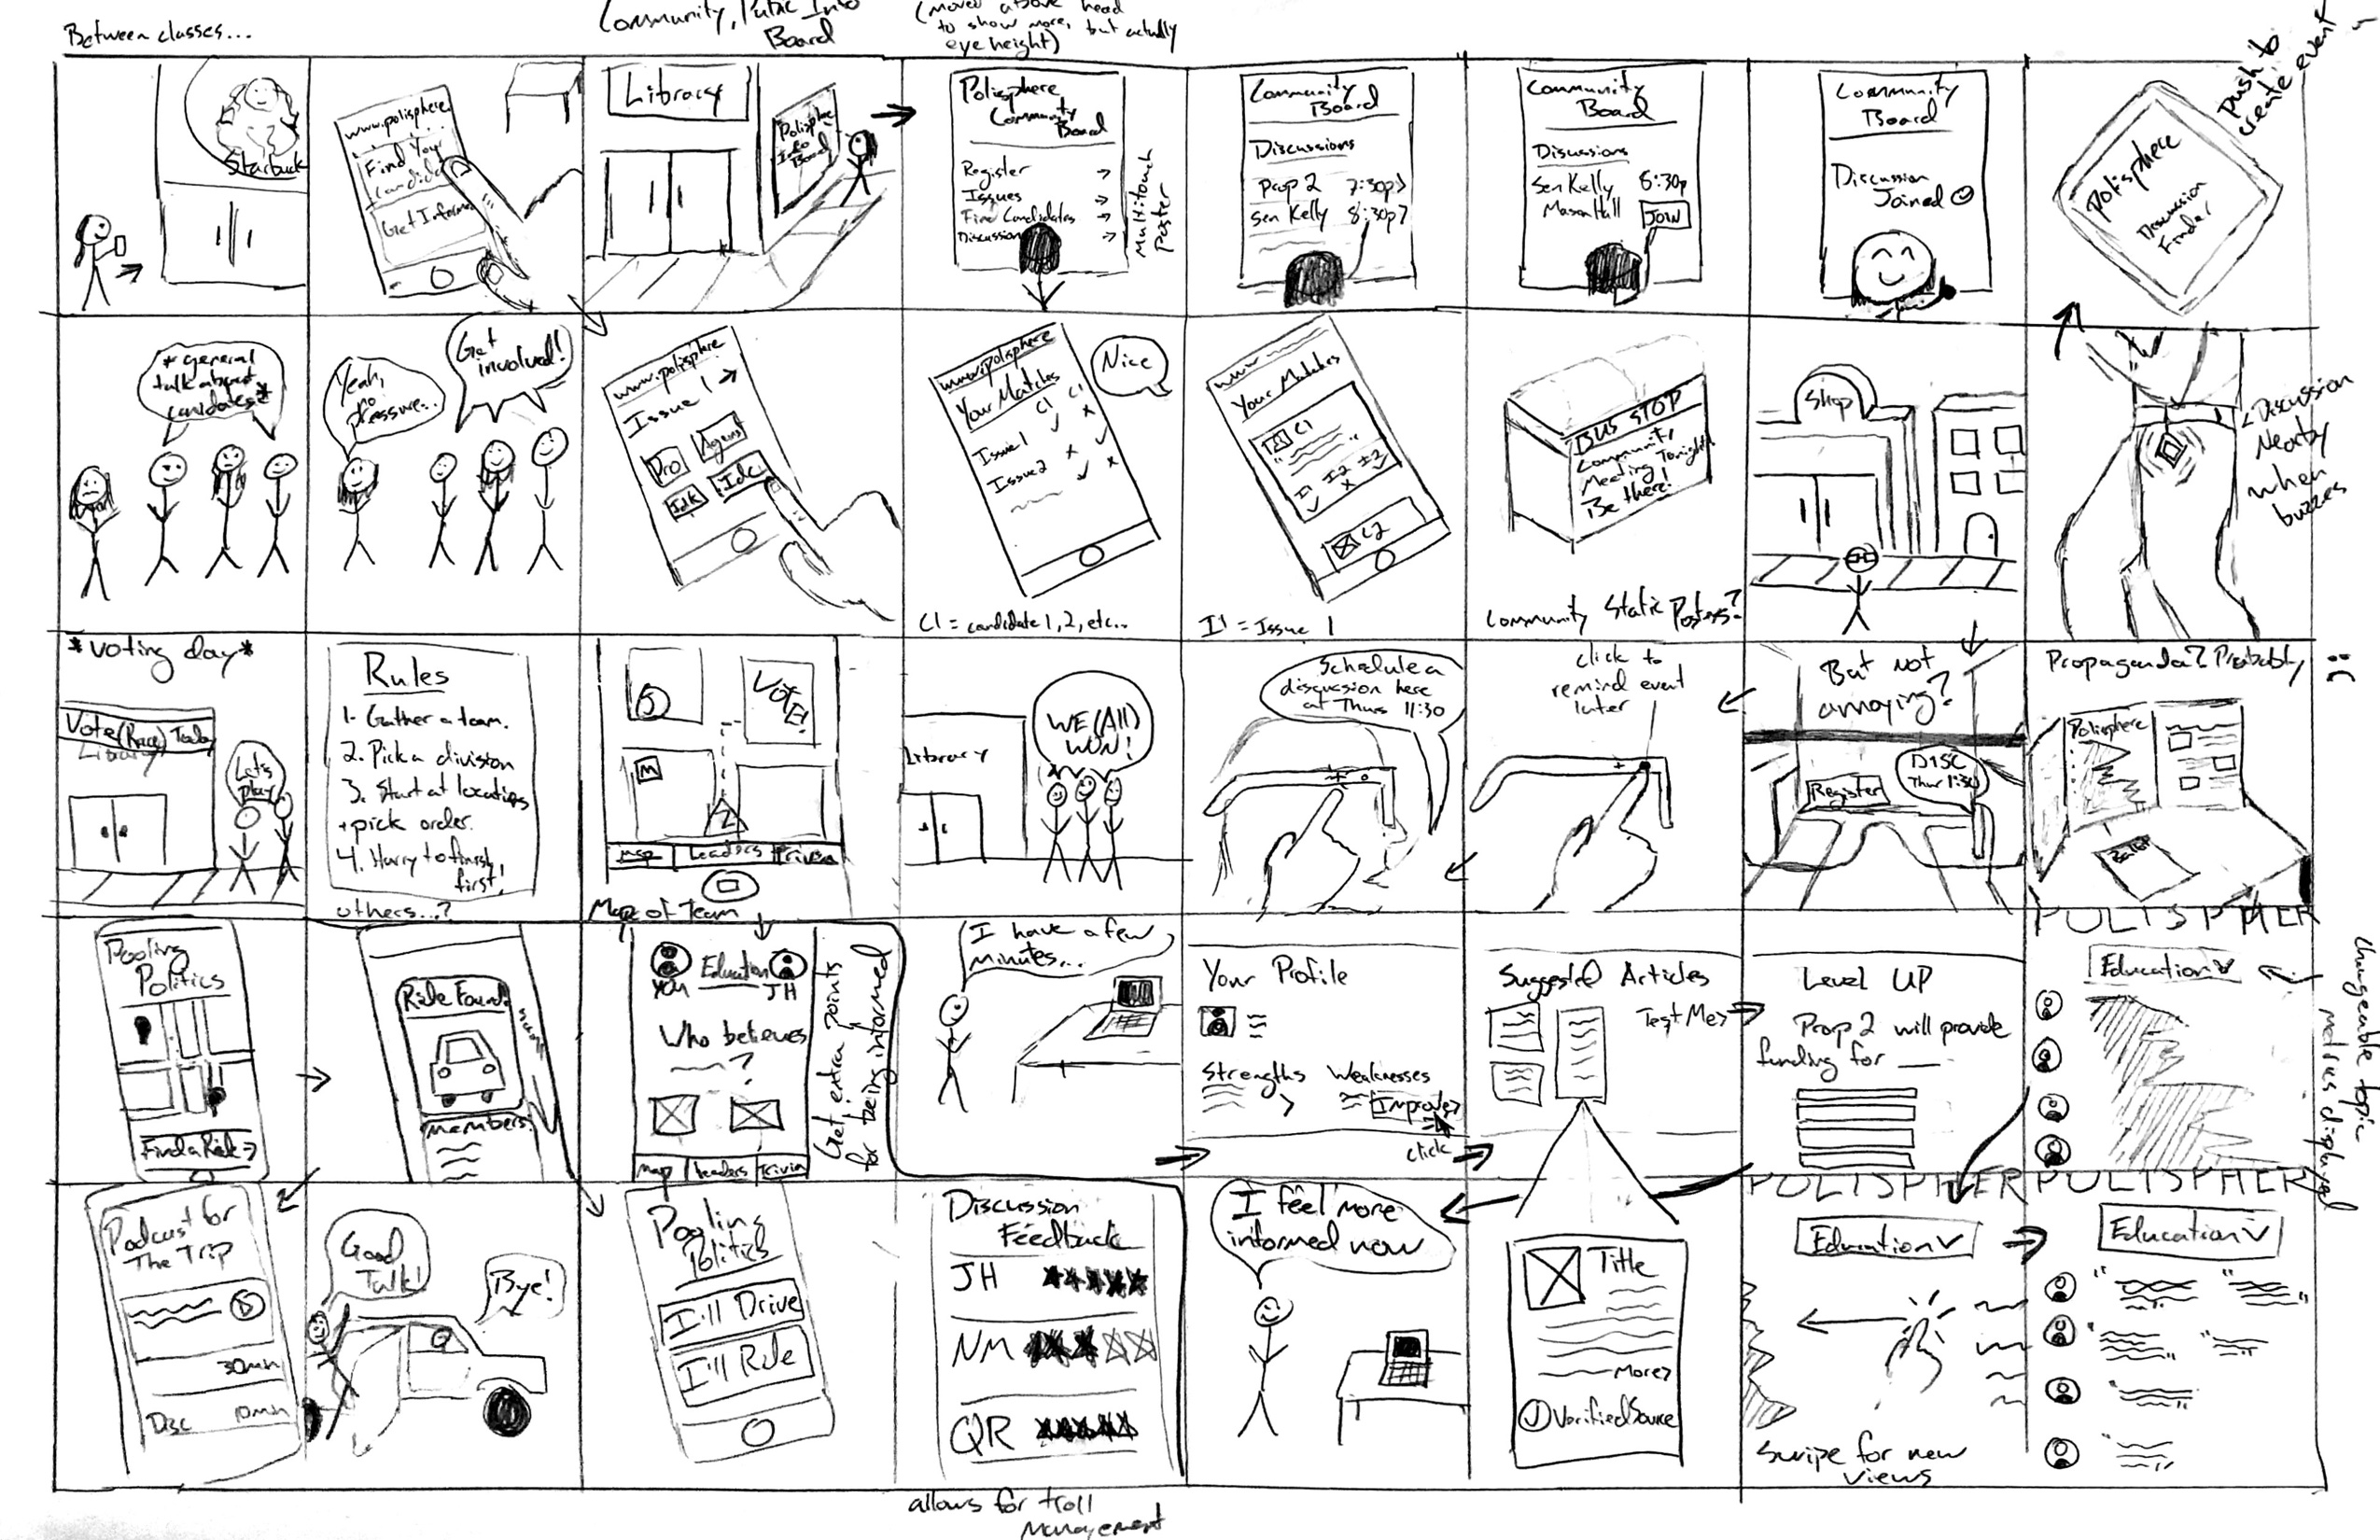 Between classes...
Community, Public Info
Board
(moved above head
to show more, but actually
eye height)
Starbuck
www.polisphere
Find Your
Candid
Get Inform
Library
Polisphere
Info
Board
Polisphere
Community
Board
Register →
Issues →
Find Candidates →
Discussion →
Multitouch
Poster
Community
Board
Discussions
Prop 2 7:30p>
Sen Kelly 8:30p>
Community
Board
Discussions
Sen Kelly 8:30p
Mason Hall
JOIN
Community
Board
Discussion
Joined ☺
Polisphere
Discussion
Finder
push to
create event
* general
talk about
candidates *
Yeah,
no
pressure...
Get
involved!
www.polisphere
Issue 1 →
Pro
Against
Idk
Idc
www.polisphere
Your Matches
C1 C1
Issue 1 ✓ x
Issue 2 x ✓
✓ x
Nice
C1 = candidate 1, 2, etc...
www
Your Matches
C1
I1 I2 I3
✓ x ✓
C2
I1 = Issue 1
BUS STOP
Community
Meeting Tonight!
Be there!
Community Static Posters?
Shop
Discussion
Nearby
when
buzzes
*voting day*
Vote (Race) Today
Library
Let's
play
Rules
1. Gather a team.
2. Pick a division
3. Start at locations
+ pick order.
4. Hurry to finish
first!
others...?
VOTE!
M
map Leaders Trivia
Map of Team
Library
WE (All)
WON!
Schedule a
discussion here
at Thurs 11:30
click to
remind event
later
But not
annoying?
Register
DISC
Thur 11:30
Propaganda? Probably :(
Polisphere
Ballot
Pooling
Politics
Find a Ride →
Ride Found
Members:
YOU Education JH
Who believes
?
map Leaders Trivia
Get extra points
for being informed
I have a few
minutes...
Your Profile
Strengths Weaknesses
Improve>
click
Suggested Articles
Test Me>
Level UP
Prop 2 will provide
funding for __
POLISPHER
Education ∨
changeable topic
metrics displayed
Podcast for
The Trip
30min
Disc 10min
Good
Talk!
Bye!
Pooling
Politics
I'll Drive
I'll Ride
Discussion
Feedback
JH ★★★★★
NM ★★★☆☆
QR ★★★★★
allows for troll
management
I feel more
informed now
Title
More>
✓ Verified Source
POLISPHER
Education ∨
Swipe for new
views
POLISPHER
Education ∨